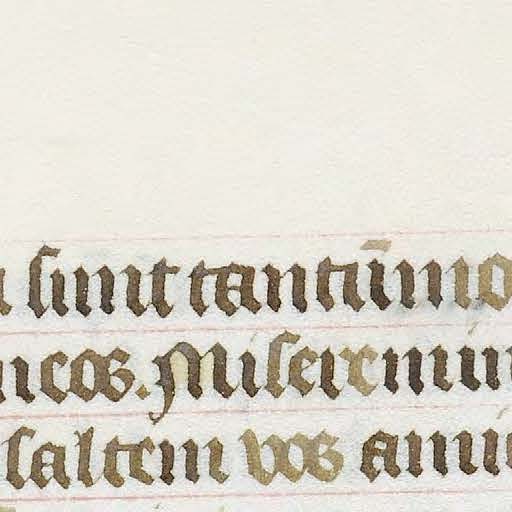 sunt tantūmo
ncos. Miseremin
saltem vos ami